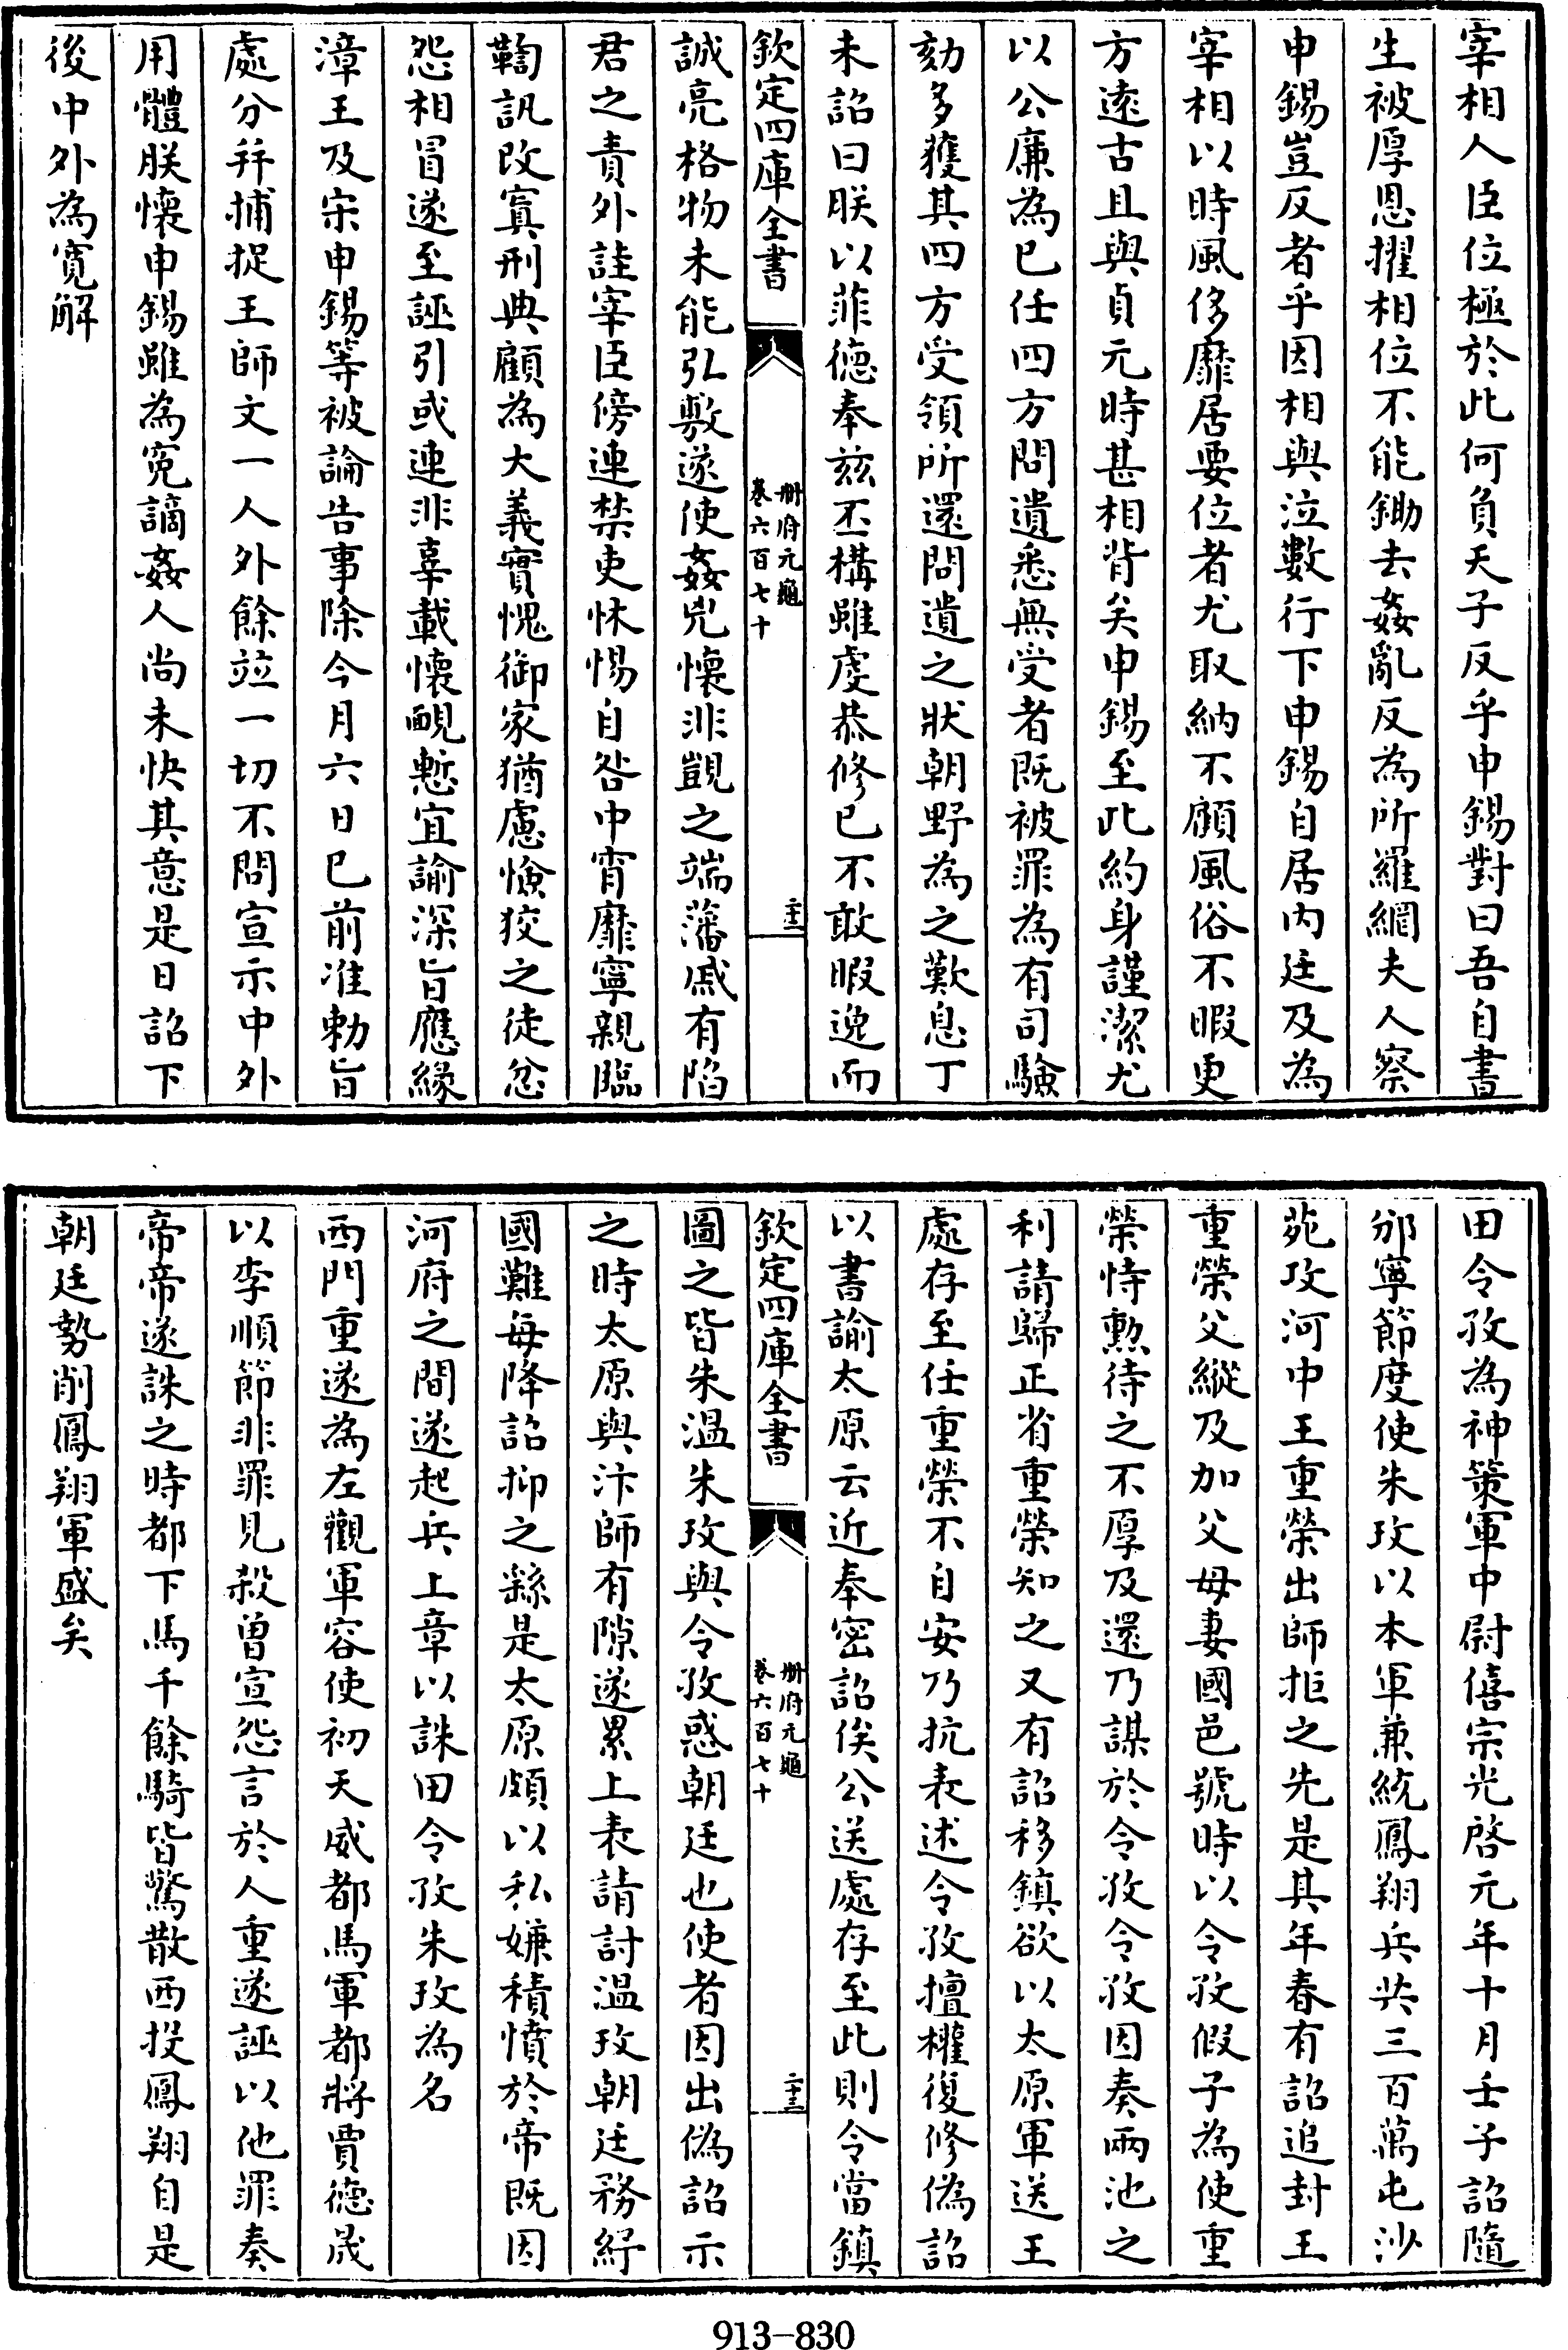 宰相人臣位極於此何負天子反乎申錫對曰吾自書
生被厚恩擢相位不能鋤去姦亂反為所羅網夫人察
申錫豈反者乎因相與泣數行下申錫自居内廷及為
宰相以時風侈靡居要位者尤取納不顧風俗不暇更
方逺古且與貞元時甚相背矣申錫至此約身謹潔尤
以公廉為已任四方問遺悉無受者既被罪為有司驗
劾多獲其四方受領所還問遺之狀朝野為之歎息丁
未詔曰朕以菲德奉兹丕構雖虔恭修已不敢暇逸而
欽定四庫全書
册府元龜
卷六百七十
二十二
誠亮格物未能弘敷遂使姦兇懷非覬之端藩戚有陷
君之責外詿宰臣傍連禁吏怵惕自咎中宵靡寧親臨
鞫訊改寘刑典顧為大義實愧御家猶慮憸狡之徒忿
怨相冒遂至誣引或連非辜載懷靦慙宜諭深旨應緣
漳王及宋申錫等被論告事除今月六日已前准勅旨
處分并捕捉王師文一人外餘竝一切不問宣示中外
用體朕懷申錫雖為寃謫姦人尚未快其意是日詔下
後中外為寛解
田令孜為神策軍中尉僖宗光啓元年十月壬子詔隨
邠寧節度使朱玫以本軍兼統鳳翔兵共三百萬屯沙
苑攻河中王重榮出師拒之先是其年春有詔追封王
重榮父縱及加父母妻國邑號時以令孜假子為使重
榮恃勲待之不厚及還乃謀於令孜令孜因奏兩池之
利請歸正省重榮知之又有詔移鎮欲以太原軍送王
處存至任重榮不自安乃抗表述令孜擅權復修偽詔
以書諭太原云近奉密詔俟公送處存至此則令當鎮
欽定四庫全書
册府元龜
卷六百七十
二十三
圖之皆朱温朱玫與令孜惑朝廷也使者因出偽詔示
之時太原與汴師有隙遂累上表請討温玫朝廷務紓
國難每降詔抑之繇是太原頗以私嫌積憤於帝既因
河府之間遂起兵上章以誅田令孜朱玫為名
西門重遂為左觀軍容使初天威都馬軍都將賈德晟
以李順節非罪見殺曽宣怨言於人重遂誣以他罪奏
帝帝遂誅之時都下馬千餘騎皆驚散西投鳳翔自是
朝廷勢削鳳翔軍盛矣
913-830